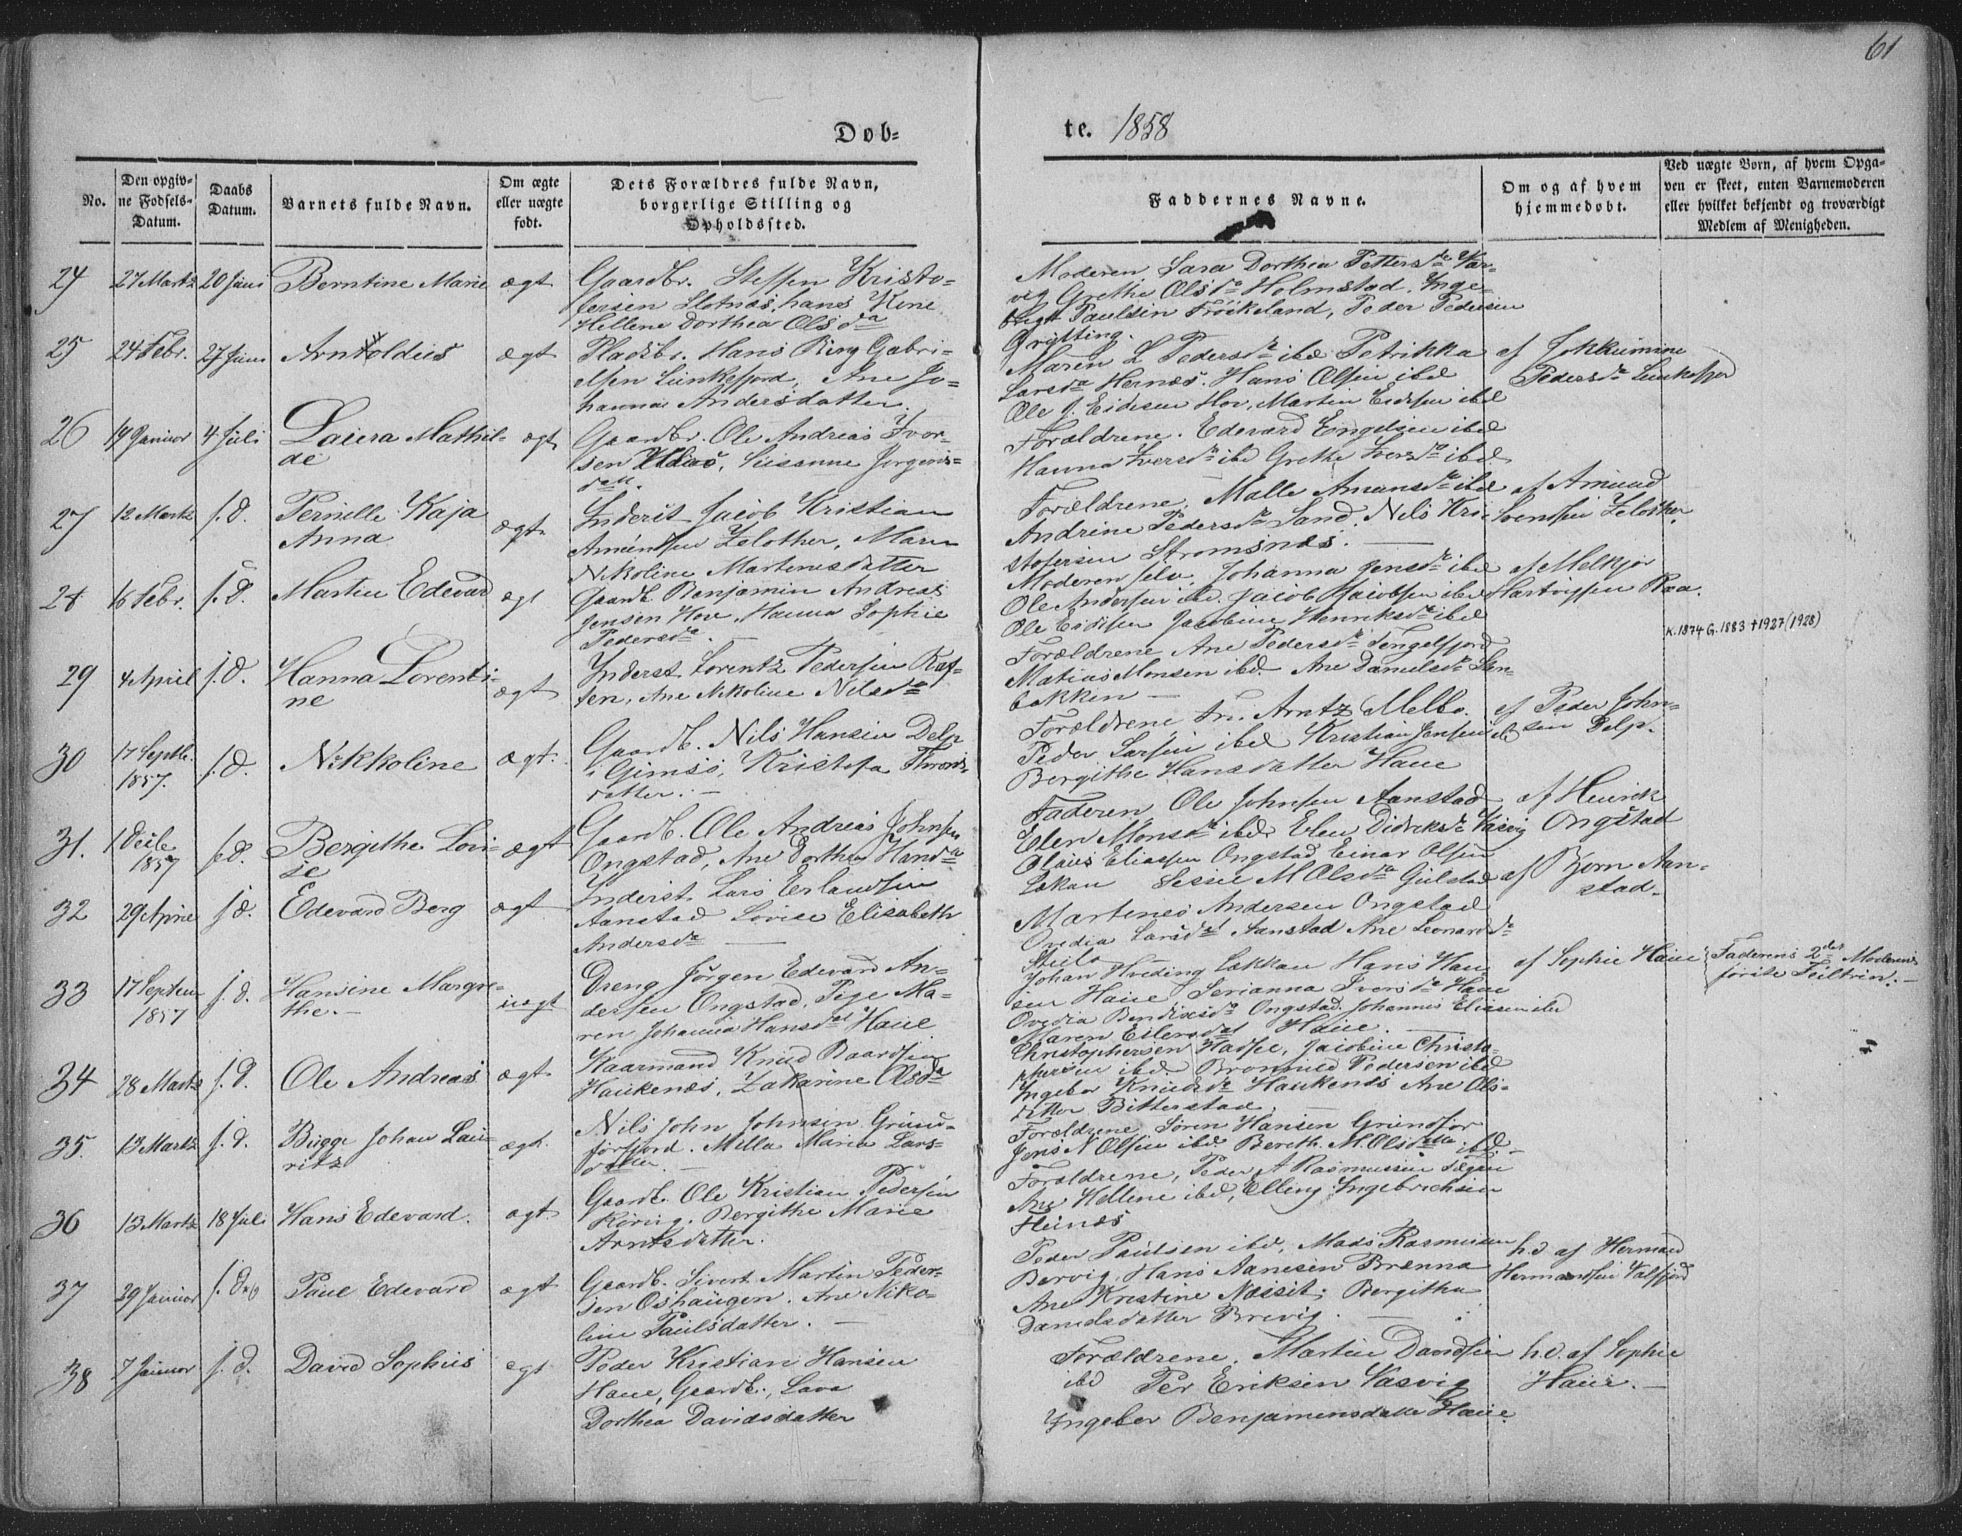 61
Døb-
te. 1858
No.
Den opgiv-
ne Fødsels-
Datum.
Daabs
Datum.
Barnets fulde Navn.
Om ægte
eller uægte
født.
Dets Forældres fulde Navn,
borgerlige Stilling og
Opholdssted.
Faddernes Navne.
Om og af hvem
hjemmedøbt.
Ved uægte Børn, af hvem Opga-
ven er skeet, enten Barnemoderen
eller hvilket bekjendt og troværdigt
Medlem af Menigheden.
24 27 Martz 20 Juni Berntine Marie ægt
Gaardbr. Steffen Kristo-
fersen Slotnæs, hans Kone
Hellene Dorthea Olsda
Moderen Sara Dorthea Pettersdr Var-
vig Grethe Olsdr Holmstad. Inge-
brigt Paulsen Frøskeland, Peder Pedersen
Grytting.
25 24 Febr. 27 Juni Arntoldus ægt
Pladsbr. Hans Ring Gabri-
elsen Lunkefjord, Ane Jo-
hanna Andersdatter.
Maren L Pedersdr ibd Petrikka
Larsda Hernæs. Hans Olsen ibd
Ole J. Eidesen Hov, Martin Eidesen ibd
af Jokkumine
Pedersdr
26 19 Januar 4 Juli Laura Mathil-
de
ægt
Gaardbr. Ole Andreas Ivor-
sen Susanne Jørgens-
datt.
Forældrene. Edevard Engelsen ibd
Hanna Iversdr ibd Grethe Iversdr ibd
27 12 Martz s. d. Pernille Kaja
Anna
ægt.
Inderst Jacob Kristian
Amundsen Zelother, Maren
Nikoline Martinusdatter
Forældrene, Malle Amunsdr ibd
Andrine Pedersdr Sand. Nils Kri-
stofersen Strømsnæs.
af Amund
Svensen Zelother.
28 16 Febr. s. d. Martin Edevard ægt
Gaardb. Benjamin Andreas
Jensen Hov. Hanna Sophie
Pedersdr.
Moderen selv. Johanna Jensdr ibd
Ole Andersen ibd. Jacob Jacobsen ibd
Ole Eidesen Jacobine Henriksdr ibd
af Melkjør
Hartvigsen Raa.
K.1874 G.1883 †1927 (1928)
29 4 April s. d. Hanna Lorenti-
ne
ægt
Inderst Lorentz Pedersen Raf-
sen, Ane Nikoline Nilsda
Forældrene Ane Pedersdr Tengelfjord
Matias Monsen ibd. Ane Danielsdr San-
bakken
30 17 Septbr.
1857.
s. d. Nikkoline ægt.
Gaardb. Nils Hansen Delp
i Gimsø, Kristofa Thron-
datter.
Forældrene Fr. Arntz Melbo.
Peder Larsen ibd Kristian Jensen ibd
Bergithe Hansdatter Haue
af Peder John-
sen Delp.
31. 1 Decbr
1857
s. d. Bergithe Lovi-
se
ægt
Gaardb. Ole Andreas Johnsen
Ongstad, Ane Dorthea Hansda
Faderen, Ole Johnsen Aanstad
Elen Monsdr ibd Elen Didriksdr Vasvig
Olaus Eliassen Ongstad Einar Olsen
Løkan Sessel M Olsda Gulstad
af Henrik
Ongstad
32 29 April s. d. Edevard Berg ægt
Inderst. Lars Erlandsen
Aanstad Lovise Elisabeth
Andersdr
Martines Andersen Ongstad
Ovedia Larsdr Aanstad Ane Leonardsdr
Steilo
af Bjørn Aan-
stad.
33 17 Septem
1857
s. d. Hansine Margre-
the.
uægt
Dreng Jørgen Edevard An-
dersen Ongstad. Pige Ma-
ren Johanna Hansdat Haue
Johan Hveding Løkkan Hans Han-
sen Haue Serianna Iversdr Haue
Ovedia Bendixsdr Ongstad. Johannes Eliassen ibd
Maren Eilersdat Haue.
af Sophie Haue
Faderens 2den Moderens
første Feiltrin.
34 28 Martz s. d. Ole Andreas ægt
Haarmand Knud Baardsen
Haukenæs, Zakarine Olsda
Christophersen Hadsel, Jacobine Christo-
phersen ibd Bronmud Pedersen ibd
Ingebor Knudsdr Haukenæs Ane Ols-
datter Bitterstad.
35. 13 Martz s. d. Bugge Johan Lau-
ritz
ægt.
Nils John Johnsen Grund-
førfjord. Milla Maria Lars-
datter.
Forældrene, Søren Hansen Grundfør
Jens N Olsen ibd. Bereth. M. Olsdatter ibd.
36 13 Martz 18 Juli Hans Edevard. ægt
Gaardb. Ole Kristian Pedersen
Rørvig. Bergithe Marie
Arntsdatter.
Forældrene, Peder A Rasmussen
Ane Hellene ibd, Elling Ingebrichsen
37 29 Januar s. dag Paul Edevard ægt
Gaardb. Sivert Martin Peder-
sen Oshaugen. Ane Niko-
line Paulsdatter.
Peder Paulsen ibd, Mads Rasmussen
Bervig, Hans Aanesen Brænna
Ane Kristine Næssit. Bergitha
Danielsdatter Brevig.
h.d af Hermand
Hermandsen Valfjord
38 7 Januar s. d. David Sophus ægt
Peder Kristian Hansen
Haue, Gaardb., Lava
Dorthea Davidsdatter
Forældrene. Martin Davidsen
ibd Per Eriksen Vasvig
Ingebor Benjamensdatter Haue.
h.d. af Sophie
Haue.